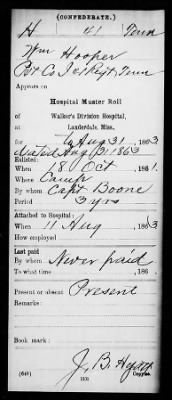 (CONFEDERATE.)
H 41 Tenn
Wm Hooper
Pvt Co I 41 Regt Tenn
Appears on
Hospital Muster Roll
of
Walker's Division Hospital,
at Lauderdale, Miss.,
for to Aug 31, 1863
dated Aug 31 1863
Enlisted:
When 18 Oct, 1861.
Where Camp
By whom Capt Boone
Period 3 yrs
Attached to Hospital:
When 11 Aug, 1863
How employed
Last paid
By whom Never paid
To what time, 186
Present or absent Present
Remarks:
Book mark:
(646)
Copyist.